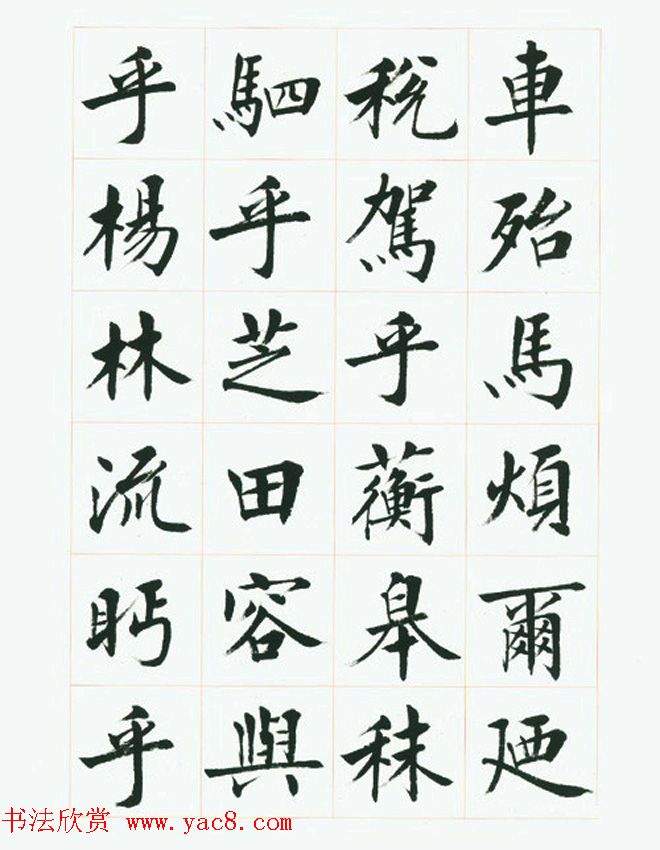 車殆馬煩爾廼
稅駕乎蘅皋秣
駟乎芝田容與
乎楊林流眄乎
书法欣赏 www.yac8.com